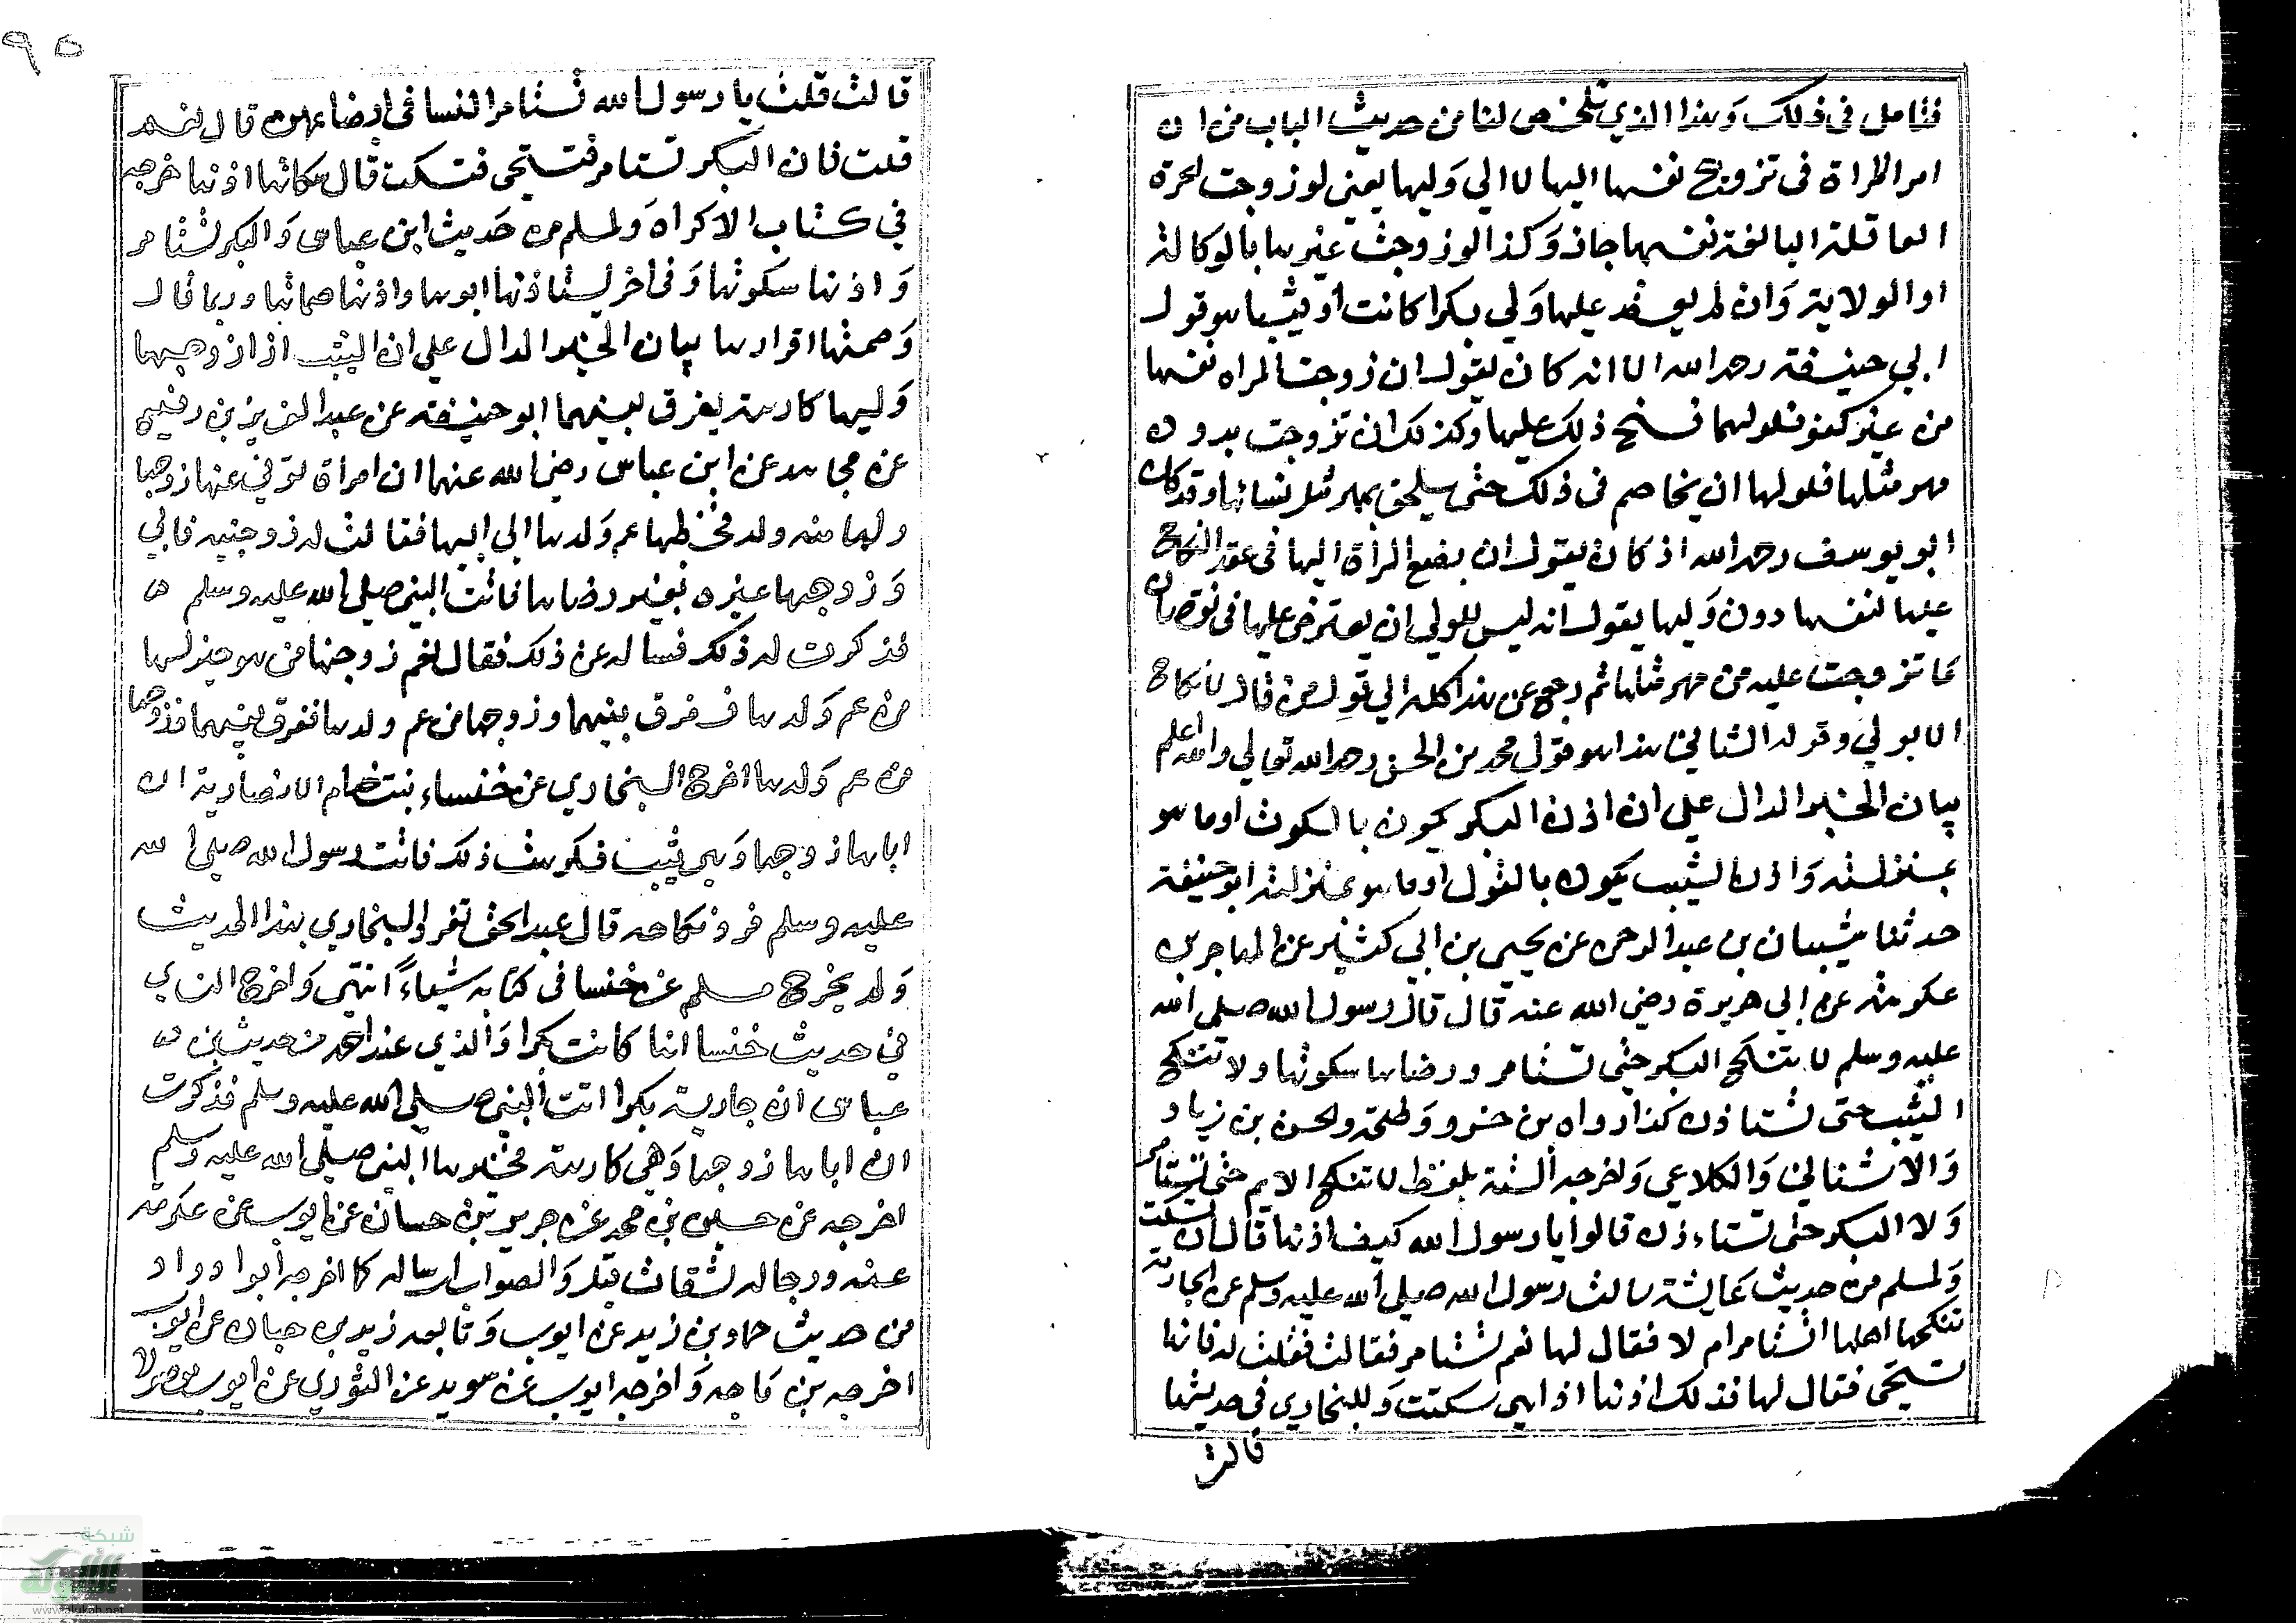 فتامل في ذلك وهذا الذي تلخص لنا من حديث الباب من ان
امر المراة في تزويج نفسها اليها لا الي وليها يعني لو زوجت الحرة
العاقلة البالغة نفسها جاز وكذا لو زوجت غيرها بالوكالة
او الولاية وان لم يعقد عليها ولي بكرا كانت او ثيبا هو قول
ابي حنيفة رحمه الله الا انه كان يقول ان زوجت المراه نفسها
من غير كفو فلوليهما فسخ ذلك عليها وكذلك ان تزوجت بدون
مهر مثلها فلوليها ان يخاصم في ذلك حتى يلحق بمهر مثل نسائها وقد كان
ابو يوسف رحمه الله اذ كان يقول ان بضع المرأة اليها في عقد النكاح
عليها لنفسها دون وليها يقول انه ليس للولي ان يعترض عليها في نقصان
ما تزوجت عليه من مهر مثلها ثم رجع عن هذا كله الي قول من قال لا نكاح
الا بولي وقوله الثاني هذا هو قول محمد بن الحسن رحمه الله تعالي والله اعلم
بيان الخبر الدال علي ان اذن البكر يكون بالسكوت اوما هو
بمنزلته واذن الثيب يكون بالقول اوما هو بمنزلته ابو حنيفة
حدثنا شيبان بن عبد الرحمن عن يحيى بن ابي كثير عن المهاجر بن
عكرمة عن ابي هريرة رضي الله عنه قال قال رسول الله صلى الله
عليه وسلم لا تنكح البكر حتى تستامر ورضاها سكوتها ولا تنكح
الثيب حتى تستاذن كذا رواه بن خسرو وطلحة والحسن بن زياد
والاشناني والكلاعي واخرجه الستة بلفظ لا تنكح الايم حتى تستامر
ولا البكر حتى تستاءذن قالوا يا رسول الله كيف اذنها قال ان تسكت
ولمسلم من حديث عايشة سالت رسول الله صلى الله عليه وسلم عن الجارية
تنكحها اهلها اتستامر ام لا فقال لها نعم تستامر فقالت فقلت له فانها
تستحي فقال لها فذلك اذنها اذا هي سكتت وللبخاري في حديثها
قالت
٩٥
قالت قلت يا رسول الله تستامر النسا في ابضاعهن قال نعم
قلت فان البكر تستامر فتستحي فتسكت قال سكاتها اذنها خرجه
في كتاب الاكراه ولمسلم من حديث ابن عباس والبكر تستامر
واذنها سكوتها وفي اخر يستاذنها ابوها واذنها صماتها وربما قال
وصمتها اقرارها بيان الخبر الدال علي ان الثيب اذا زوجها
وليها كارهة يفرق بينهما ابو حنيفة عن عبد العزيز بن رفيع
عن مجاهد عن ابن عباس رضي الله عنهما ان امراة توفي عنها زوجها
ولها منه ولد فخطبها عم ولدها الي ابيها فقالت له زوجنيه فابي
وزوجها غيره بغير رضاها فاتت النبي صلى الله عليه وسلم
فذكرت له ذلك فساله عن ذلك فقال نعم زوجتها من هو خير لها
من عم ولدها ففرق بينهما وزوجها من عم ولدها ففرق بينهما فزوجها
من عم ولدها اخرج البخاري عن خنساء بنت خدام الانصارية ان
اباها زوجها وهي ثيب فكرهت ذلك فاتت رسول الله صلى الله
عليه وسلم فرد نكاحه قال عبد الحق تفرد البخاري بهذا الحديث
ولم يخرج مسلم عن خنسا في كتابه شياءً انتهى واخرج النساي
في حديث خنسا انها كانت بكرا والذي عند احمد من حديث بن
عباس ان جارية بكرا اتت النبي صلى الله عليه وسلم فذكرت
ان اباها زوجها وهي كارهة فخيرها النبي صلى الله عليه وسلم
اخرجه عن حسين بن محمد عن جرير بن حسان عن ايوب عن عكرمة
عنه ورجاله ثقات قيل والصواب ارساله كما اخرجه ابوا دواد
من حديث حماد بن زيد عن ايوب وتابعه زيد بن حبان عن ايوب
اخرجه بن ماجه واخرجه ايوب عن سويد عن الثوري عن ايوب موصولا
شبكة
الألوكة
www.alukah.net